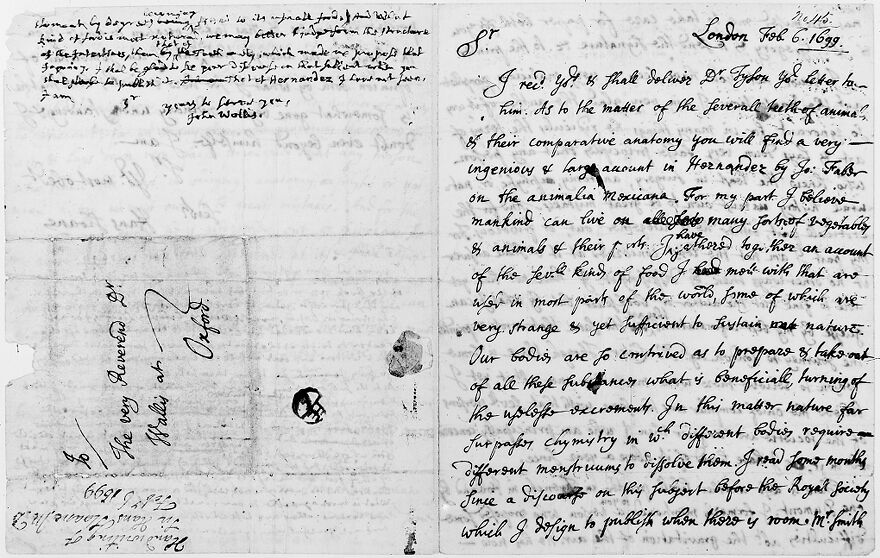 stomach by degrees
inuring
it self to its usuall food,) And what
kind of foode most naturall, we may better judge from the structure
of the Intestines, then
that of
by the Teeth only, which made me propose that
Inquiry. I shal be glad to see your Discourse on that subject when you
shal please to publish it. That of Hernandez I have not seen.
I am
Sr
yours to serve you,
John Wallis.
To
The very Reverend Dr
Wallis at
Oxford.
Handwriting of
Sir Hans Sloane M D
Feb. 6 1699
No 46.
London Feb 6. 1699
Sr
I recd yors & shall deliver Dr Tyson yor letter to
him. As to the matter of the severall teeth of animals
& their comparative anatomy you will find a very
ingenious & large account in Hernandez by Jo: Faber
on the animalia Mexicana. For my part I believe
mankind can live on many sorts of vegetables
& animals & their parts. I
have
gathered together an account
of the severll kinds of food I mett with that are
used in most parts of the world, some of which are
very strange & yet sufficient to sustain nature.
Our bodies are so contrived as to prepare & take out
of all these substances what is beneficiall, turning of
the uselesse excrements. In this matter nature far
surpasses chymistry in wch different bodies require
different menstruums to dissolve them. I read some months
since a discourse on this subject before the Royal Society
which I design to publish when there is room. Mr Smith